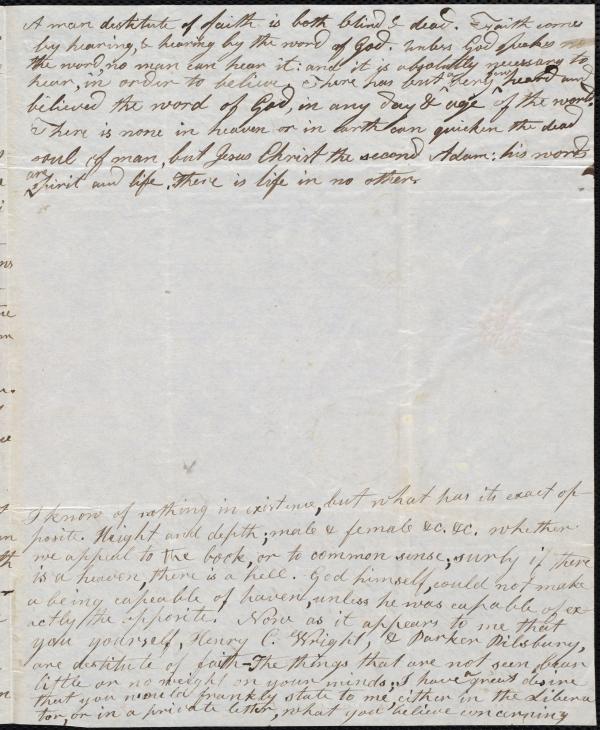 A man destitute of faith is both blind & dead. Faith comes
by hearing, & hearing by the word of God. Unless God speaks
the word, no man can hear it: and it is absolutely necessary to
hear, in order to believe. There has but heard and
believed the word of God, in any day & age of the world.
There is none in heaven or in earth can quicken the dead
soul of man, but Jesus Christ the second Adam: his words
are
spirit and life. There is life in no other.
I know of nothing in existence, but what has its exact op-
posite. Height and depth; male & female &c. &c. whether
we appeal to the book, or to common sense; surly if there
is a heaven, there is a hell. God himself, could not make
a being capeable of haven, unless he was capable of ex-
actly the opposite. Now as it appears to me that
you yourself, Henry C. Wright, & Parker Pilsbury,
are destitute of faith - The things that are not seen, bear
little or no weight on your minds, I have great desire
that you would frankly state to me, either in the Libera
tor, or in a private letter, what you believe concerning